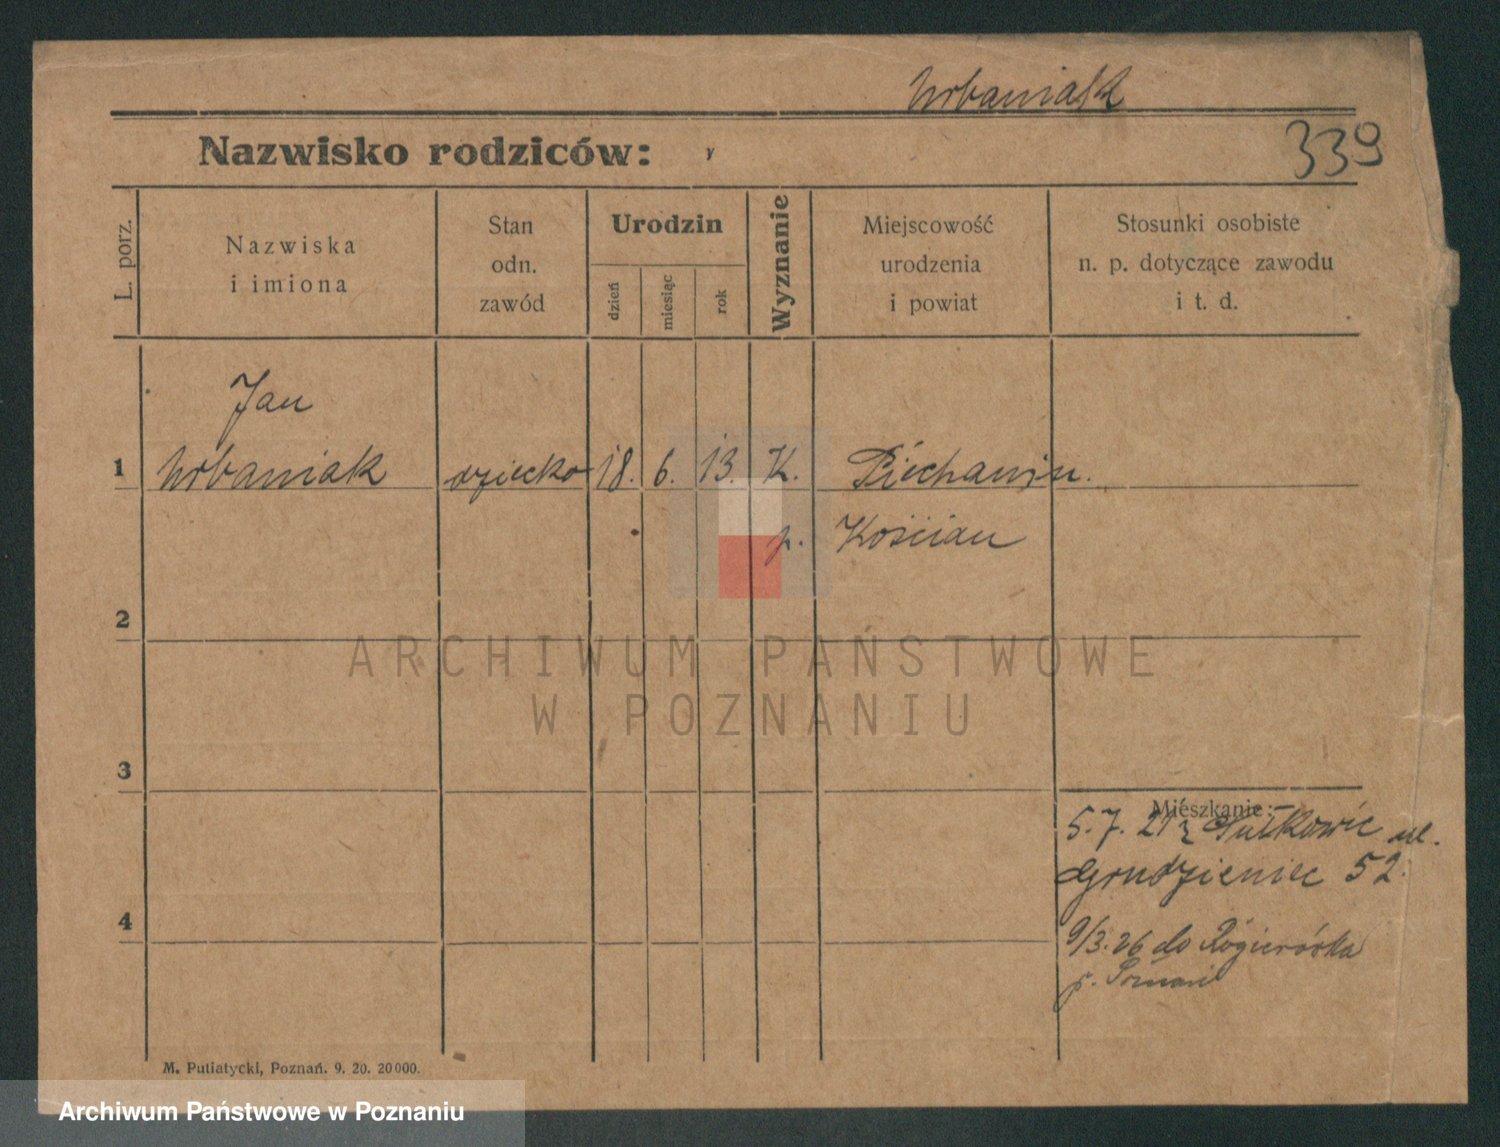 Urbaniak
Nazwisko rodziców:
339
L. porz.
Nazwiska
i imiona
Stan
odn.
zawód
Urodzin
dzień
miesiąc
rok
Wyznanie
Miejscowość
urodzenia
i powiat
Stosunki osobiste
n. p. dotyczące zawodu
i t. d.
Jan
1 Urbaniak dziecko 18. 6. 13. K. Piechanin.
p. Kościan
2
ARCHIWUM PAŃSTWOWE
W POZNANIU
3
Mieszkanie:
5. 7. 21 z ul.
Grudzieniec 52.
4
9/3.26 do
p. Poznań
M. Putiatycki, Poznań. 9. 20. 20000.
Archiwum Państwowe w Poznaniu